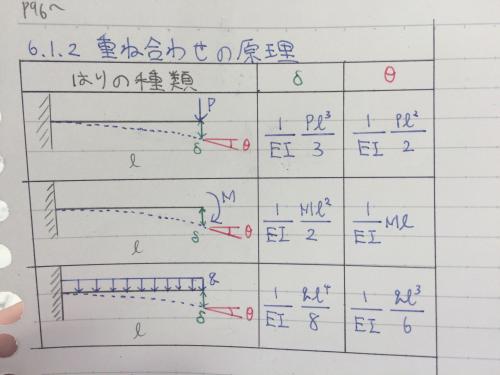 P96〜
6.1.2 重ね合わせの原理
はりの種類 δ θ
P
δ θ
l
1/EI Pl³/3
1/EI Pl²/2
M
δ θ
l
1/EI Ml²/2
1/EI Ml
q
δ θ
l
1/EI ql⁴/8
1/EI ql³/6